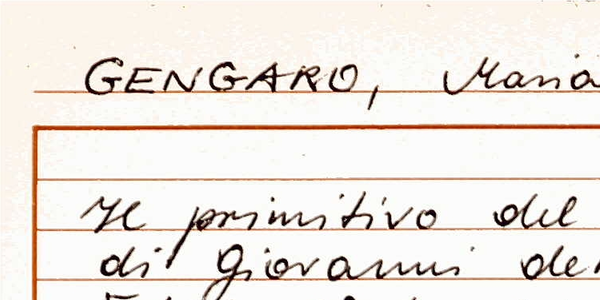 GENGARO, Maria
Il primitivo del
di Giovanni de